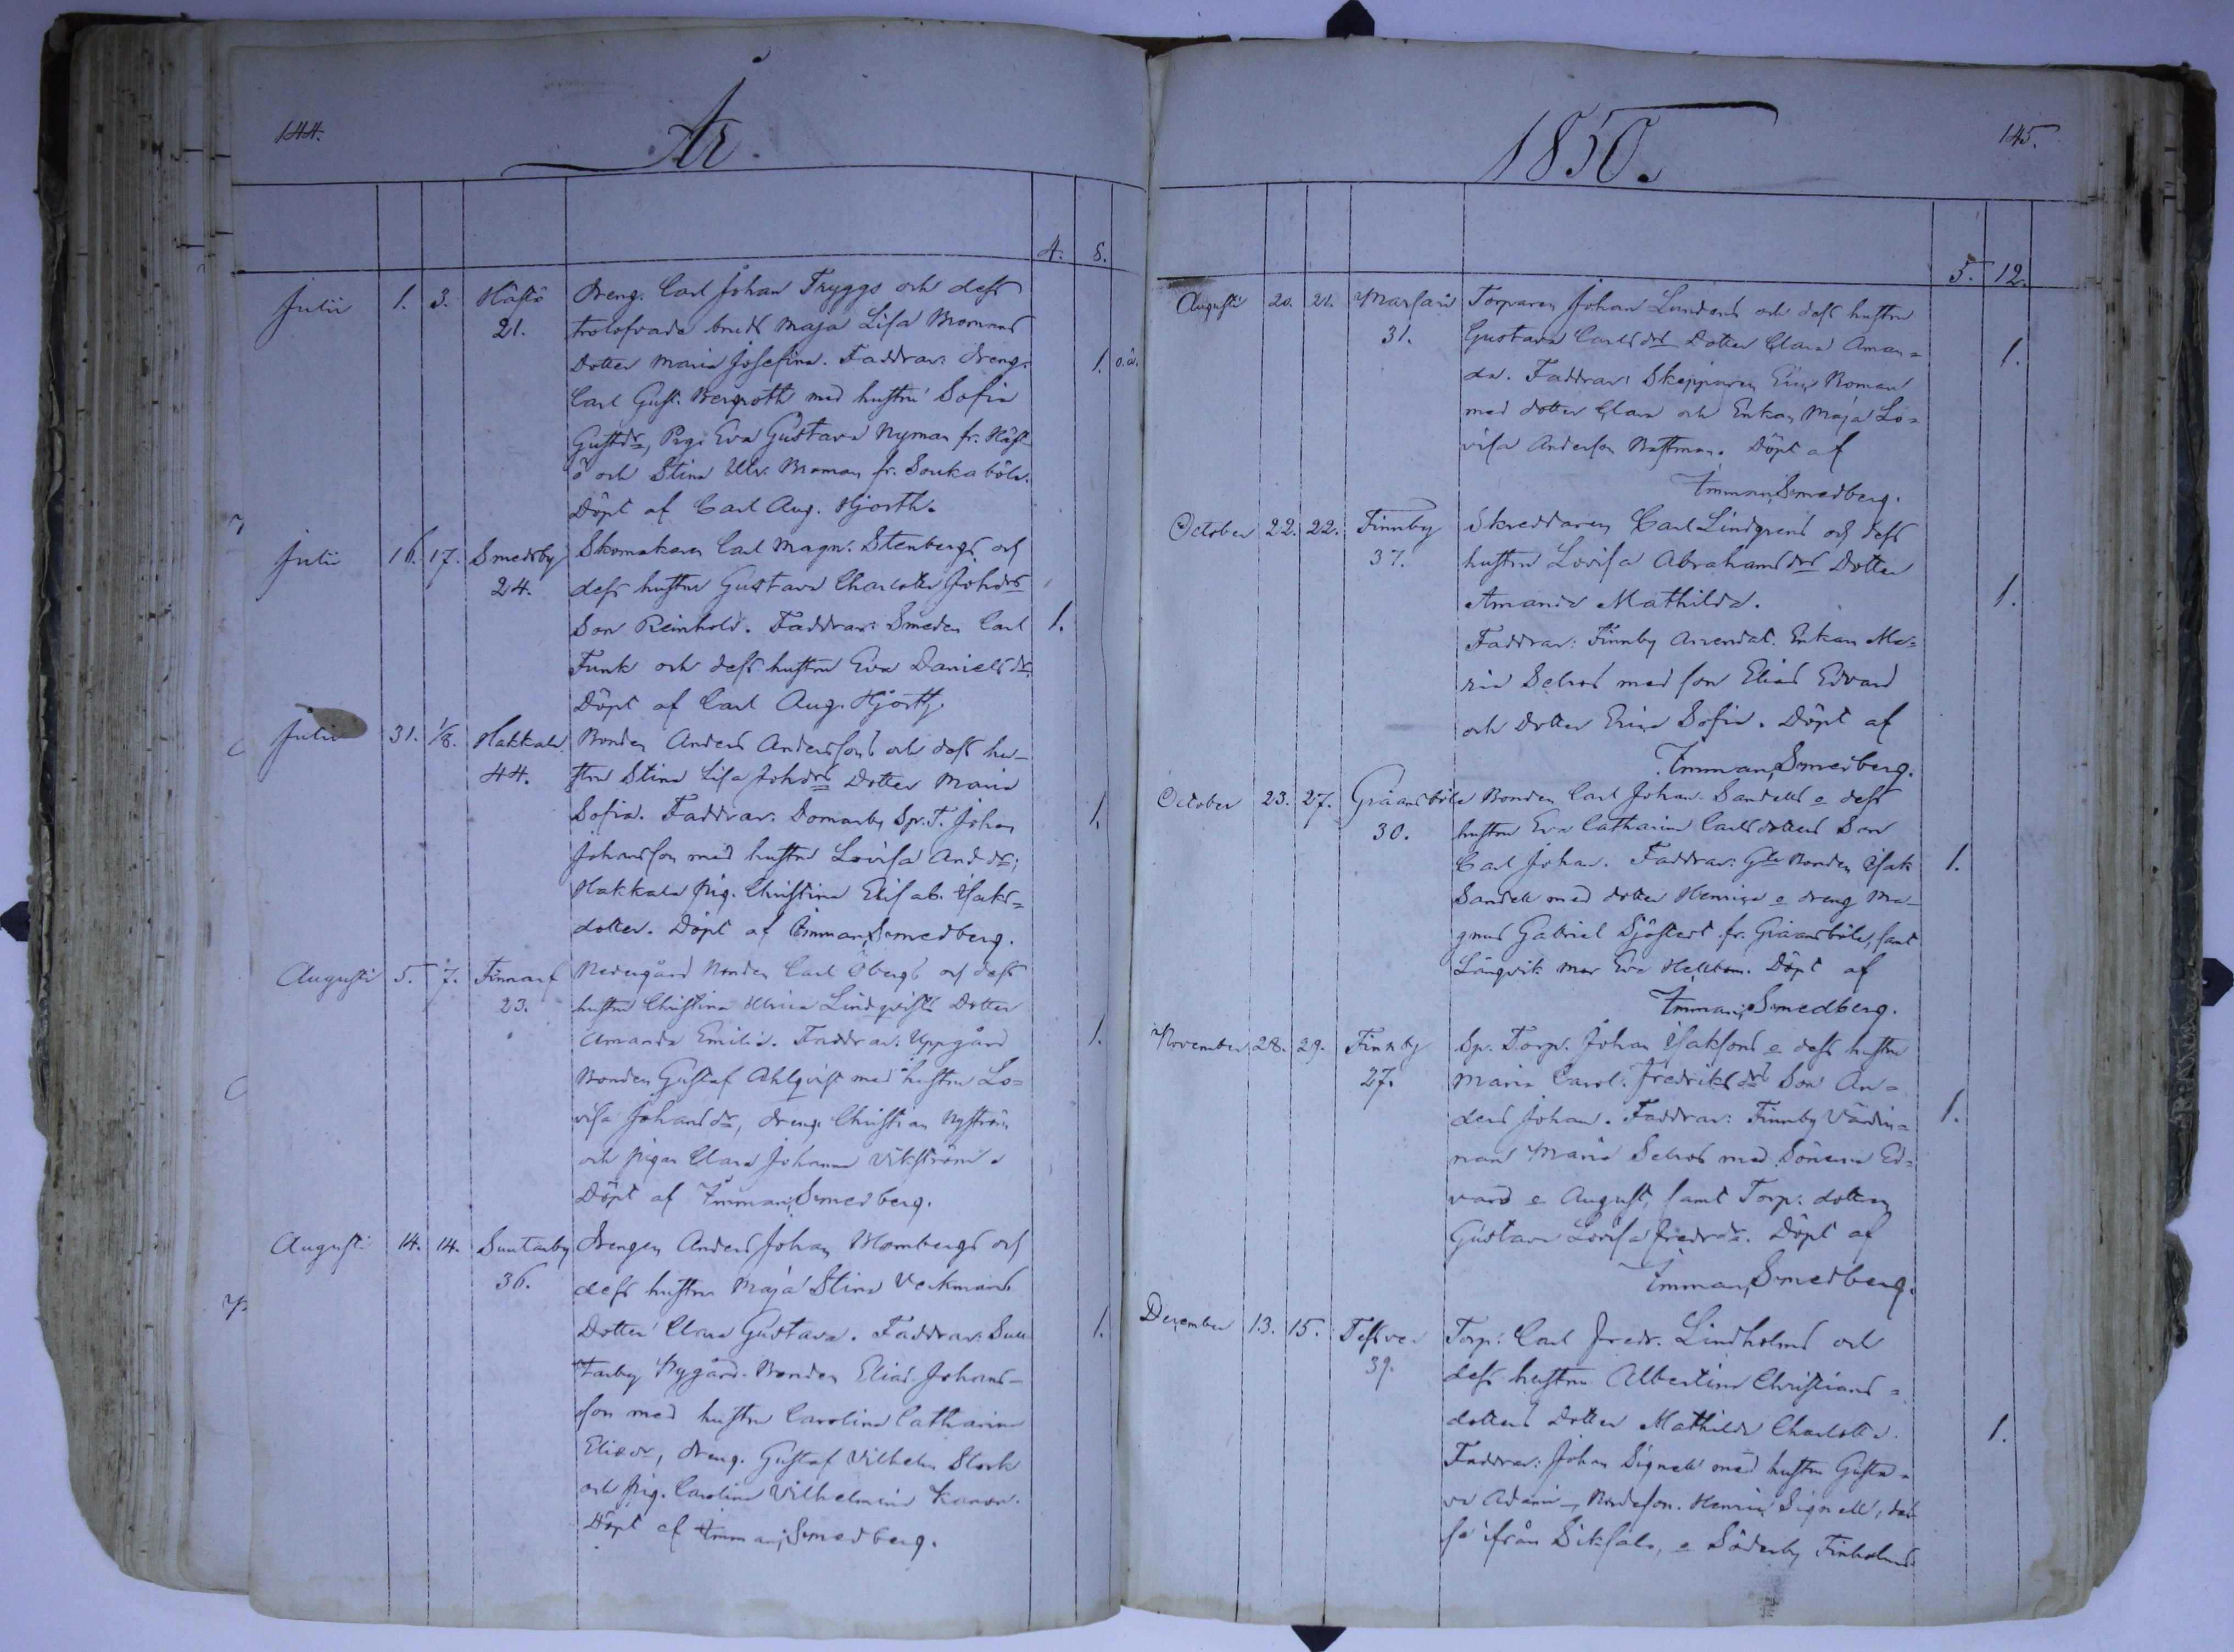 144.
År
4. 8.
Julii 1. 3. Hästö Dreng. Carl Johan Tryggs och dess
21. trolofvade bruds Maja Lisa Momans
Dotter Maria Josefina. Faddrar: dreng. 1. o.ä.
Carl Gust. Bergroth med hustru Sofia
Gustdr, Pig. Eva Gustava Nyman fr. Häst-
ö och Stina Ulr. Moman fr. Soukaböle.
Döpt af Carl Aug. Hjorth.
Julii 16. 17. Smedsby Skomakaren Carl Magn. Stenbergs och
24. dess hustru Gustava Charlotta Johdrs
Son Reinhold. Faddrar: Smeden Carl 1.
Funk och dess hustru Eva Danielsdr.
Döpt af Carl Aug. Hjorth.
Julii 31. 1/8. Hakkala Bonden Anders Anderssons och dess hu-
44. stru Stina Lisa Johdrs Dotter Maria
Sofia. Faddrar. Domarby Sp. T. Johan 1.
Johansson med hustru Lovisa Anddr;
Hakkala pig. Christina Elisab. Isaks=
dotter. Döpt af Imman. Smedberg.
Augusti 5. 7. Finnarf Nedergård Bonden Carl Öbergs och dess
23. hustru Christina Ulrica Lindqvists Dotter
Amanda Emilia. Faddrar: Uppgård 1.
Bonden Gustaf Ahlqvist med hustru Lo=
visa Johansdr, dreng. Christian Nyström
och pigan Clara Johanna Vikström.
Döpt af Imman. Smedberg.
Augusti 14. 14. Suutarby Drengen Anders Johan Blombergs och
36. dess hustru Maja Stina Veckmans
Dotter Clara Gustava. Faddrar: Suu 1.
tarby Nygård. Bonden Elias Johans-
son med hustru Carolina Catharina
Eliædr, dreng. Gustaf Vilhelm Stork
och pig. Carolina Vilhelmina
Döpt af Imman. Smedberg.
1850.
145.
5. 12.
Augusti 20. 21. Marsari Torparen Johan Lundens och dess hustru
31. Gustava Carlsdrs Dotter Clara Aman= 1.
da. Faddrar: Skepparen Eric Roman
med dotter Clara och Enkan Maja Lo=
visa Anderson Döpt af
Imman. Smedberg.
October 22. 22. Finnby Skreddaren Carl Lindgrens och dess
37. hustru Lovisa Abrahamsdrs Dotter
Amanda Mathilda. 1.
Faddrar: Finnby Arrendat. Enkan Ma=
ria Selros med son Elias Edvard
och Dotter Erica Sofia. Döpt af
Imman. Smedberg.
October 23. 27. Gräansböle Bonden Carl Johan Sandells o dess
30. hustru Eva Catharina Carlsdotters Son
Carl Johan. Faddrar: Gle Bonden Isak 1.
Sandell med dotter Henrica o dreng Ma-
gnus Gabriel Sjöstedt fr. Gräansböle, samt
Långvik mor Eva Hellbom. Döpt af
Imman. Smedberg.
November 28. 29. Finnby Sp. Torp. Johan Isaksons o dess hustru
27. Maria Carol. Fredriksdrs Son An=
ders Johan. Faddrar: Finnby Värdin= 1.
nan Maria Selros med Sönerna Ed=
vard o August, samt Torp. dottern
Gustava Lovisa Fredrdr. Döpt af
Imman. Smedberg.
December 13. 15. Tessver Torp: Carl Fredr. Lindholms och
39. dess hustru Albertina Christians=
dotters Dotter Mathilda Charlotta. 1.
Faddrar: Johan Signell med hustru Gusta=
va Adami, Bondeson. Henric Signell, des
se ifrån Siksalo, o Söderby